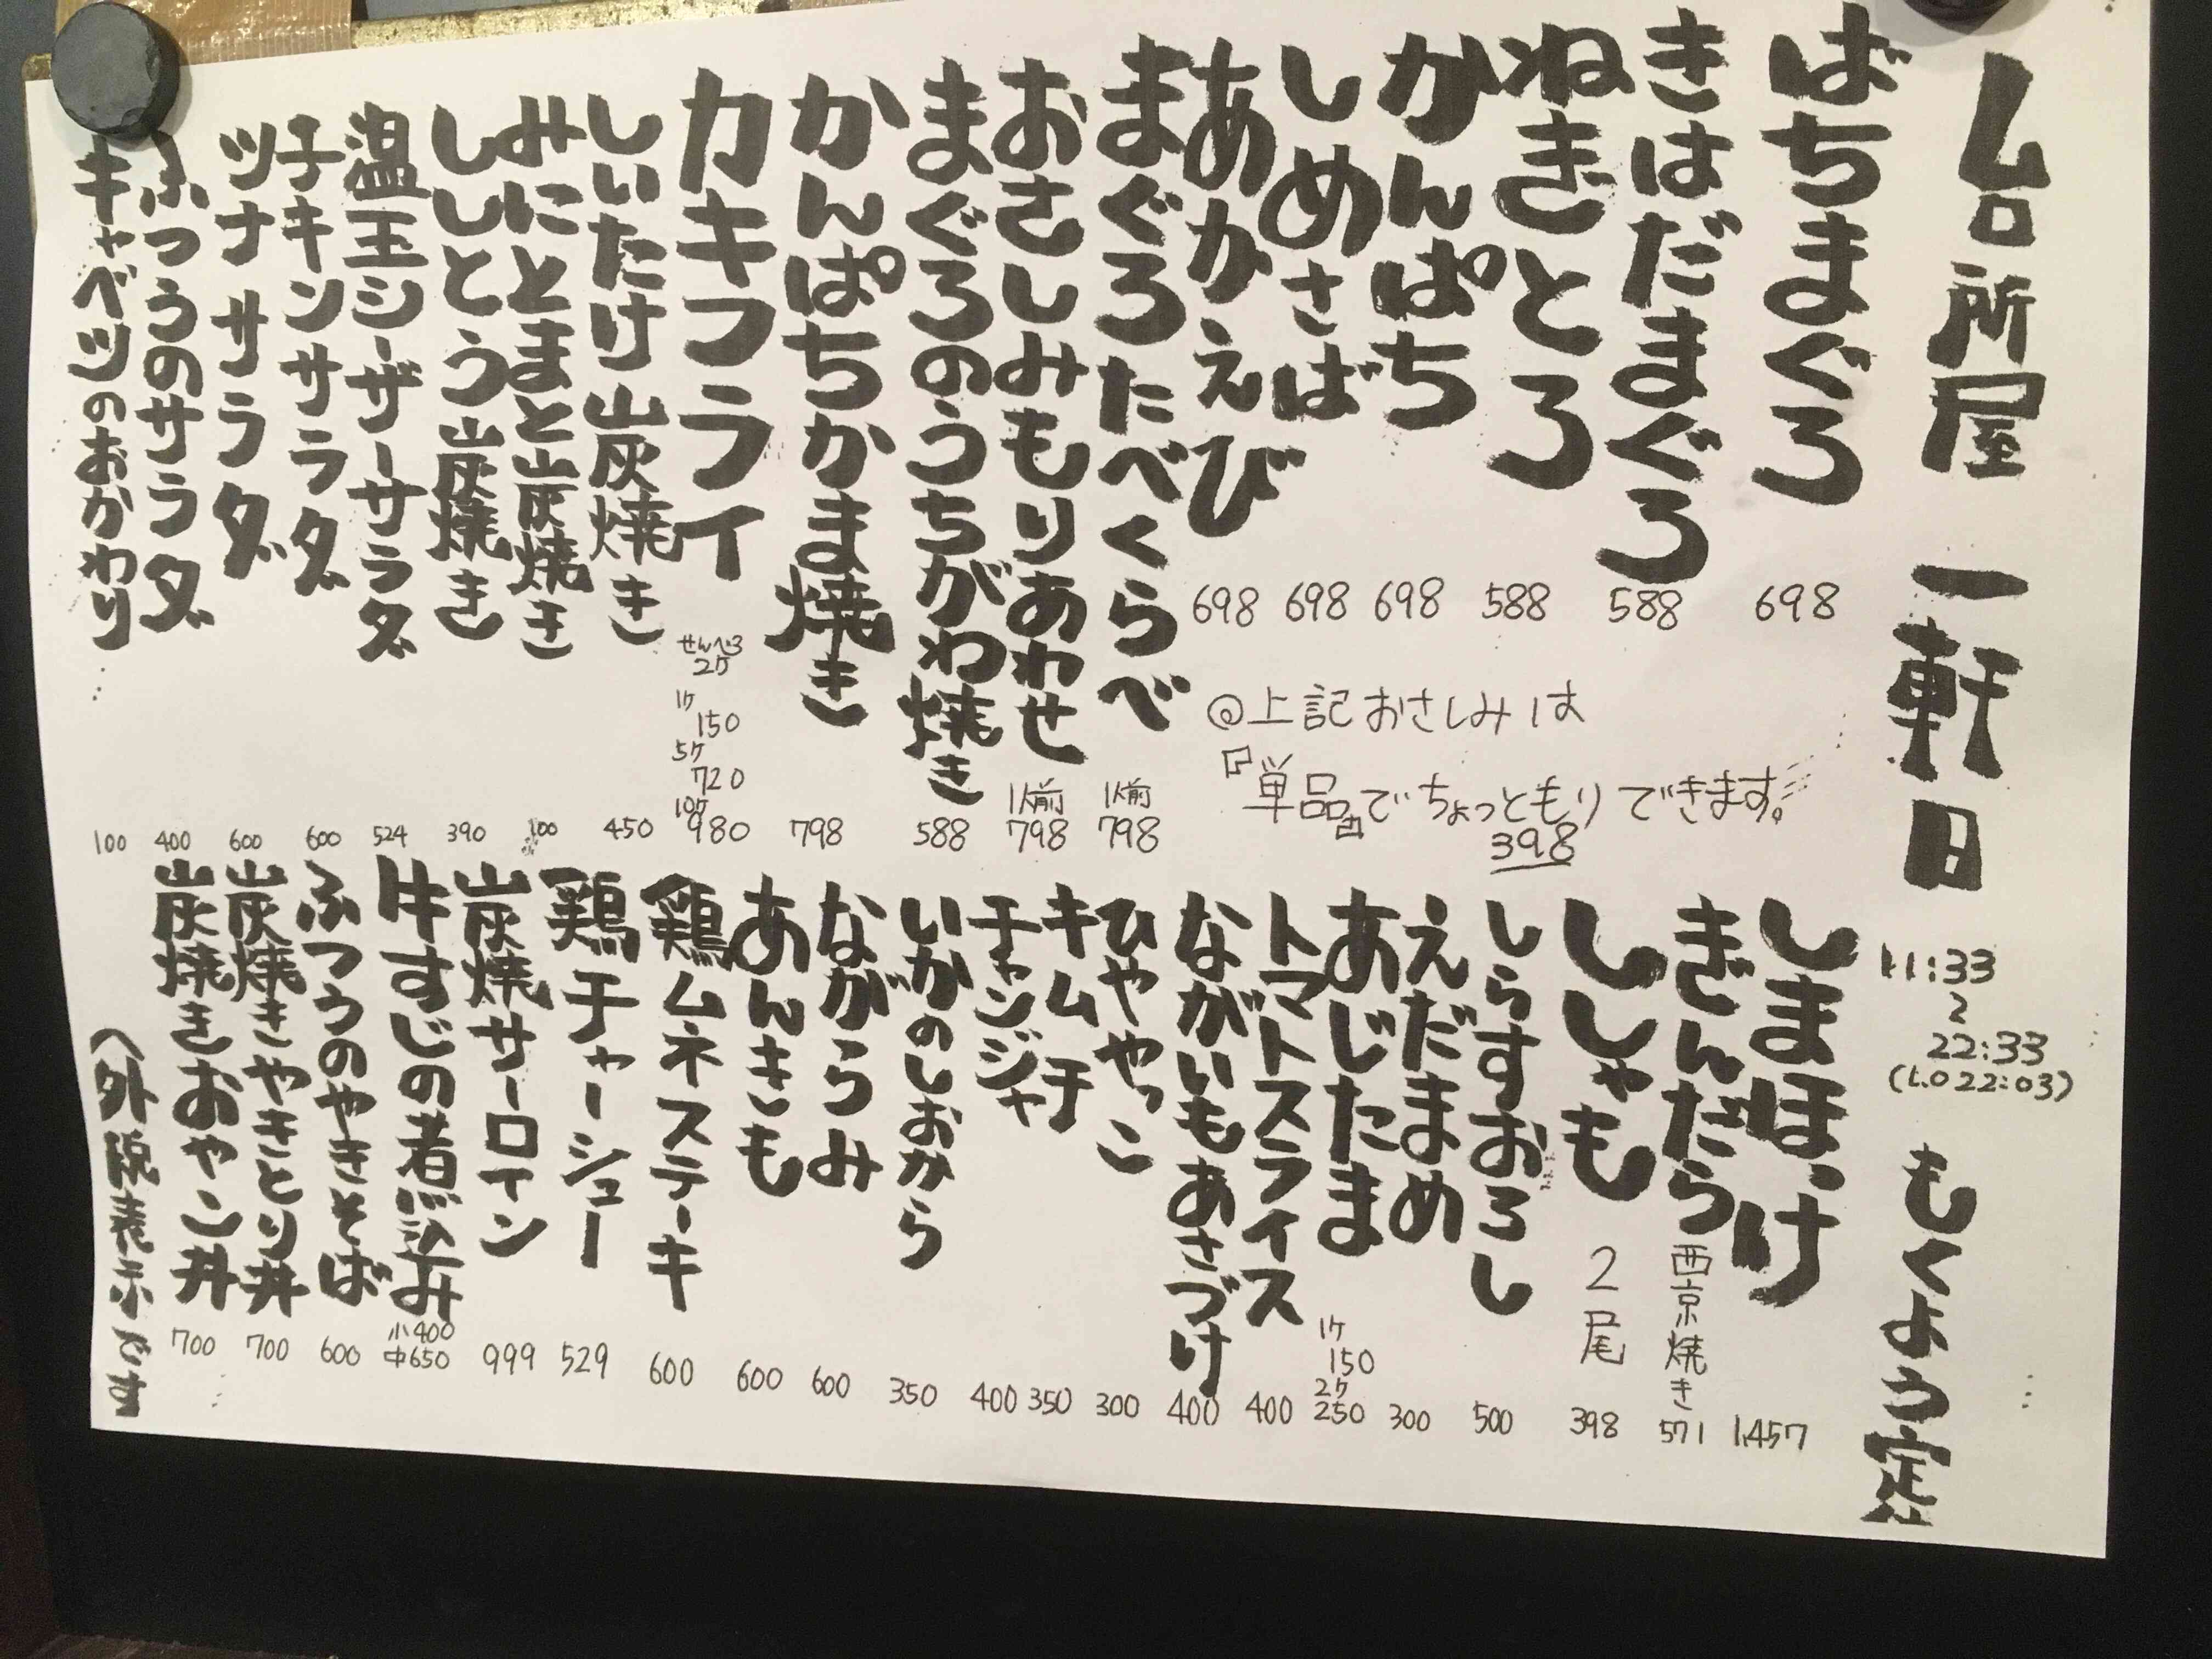 台所屋 一軒目 11:33〜22:33 (L.O 22:03) もくよう定
ばちまぐろ 698
きはだまぐろ 588
ねぎとろ 588
かんぱち 698
しめさば 698
あかえび 698
@上記おさしみは
『単品』でちょっともりできます。
398
まぐろたべくらべ 1人前 798
おさしみもりあわせ 1人前 798
まぐろのうちがわ焼き 588
かんぱちかま焼き 798
カキフライ せんべろ 2ケ 1ケ 150 5ケ 720 10ケ 980
しいたけ炭焼き 450
みにとまと炭焼き 100
ししとう炭焼き 390
温玉シーザーサラダ 524
チキンサラダ 600
ツナサラダ 600
ふつうのサラダ 400
キャベツのおかわり 100
しまほっけ 1,457
ぎんだら 西京焼き 571
ししゃも 2尾 398
しらすおろし 500
えだまめ 300
あじたま 1ケ 150 2ケ 250
トマトスライス 400
ながいもあさづけ 400
ひややっこ 300
キムチ 350
チャンジャ 400
いかのしおから 350
ながらみ 600
あんきも 600
鶏ムネステーキ 600
鶏チャーシュー 529
炭焼サーロイン 999
牛すじの煮込み 小400 中650
ふつうのやきそば 600
炭焼きやきとり丼 700
炭焼きおやこ丼 700
(外税表示です